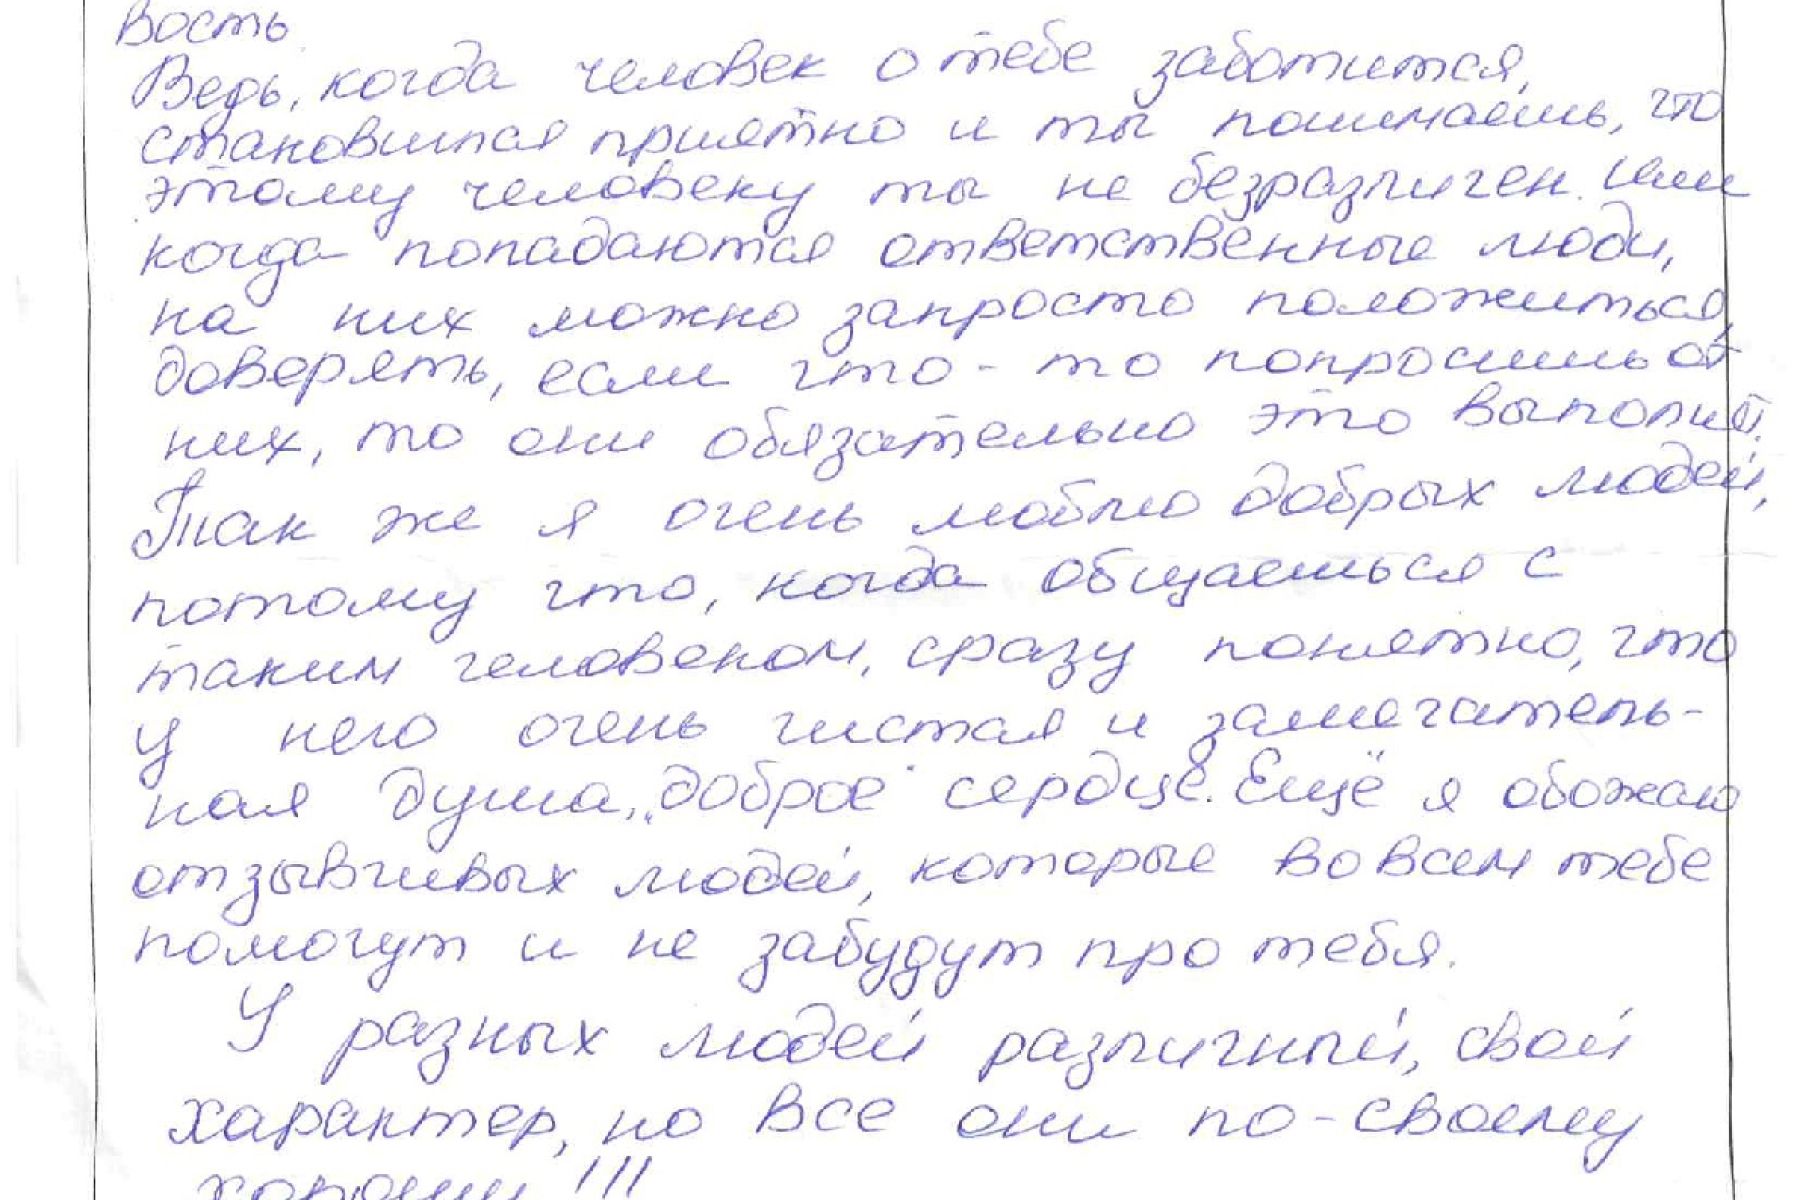 вость
Ведь, когда человек о тебе заботится,
становится приятно и ты понимаешь, что
этому человеку ты не безразличен. Или
когда попадаются ответственные люди,
на них можно запросто положиться,
доверять, если что-то попросишь от
них, то они обязательно это выполнят.
Так же я очень люблю добрых людей,
потому что, когда общаешься с
таким человеком, сразу понятно, что
у него очень чистая и замечатель-
ная душа, "доброе" сердце. Ещё я обожаю
отзывчивых людей, которые во всем тебе
помогут и не забудут про тебя.
У разных людей различный, свой
характер, но все они по-своему
хороши!!!